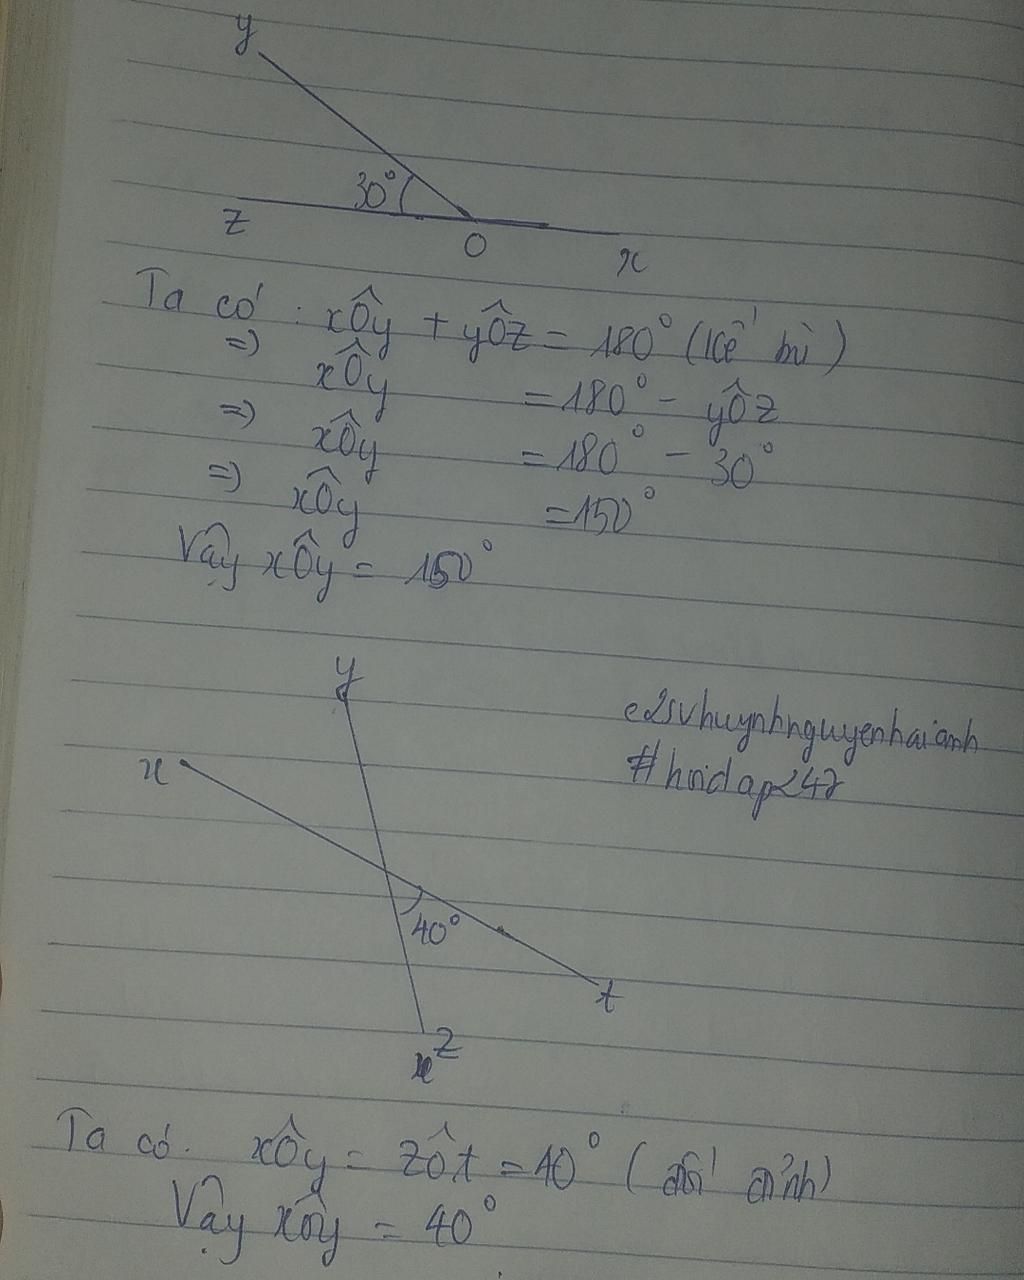 y
30°
z
O
x
Ta có : xÔy + yÔz = 180° (kề bù)
=> xÔy = 180° - yÔz
=> xÔy = 180° - 30°
=> xÔy = 150°
Vậy xÔy = 150°
y
e2svhuynhnguyenhaianh
x
#hoidap247
40°
t
z
Ta có. xÔy = zÔt = 40° (đối đỉnh)
Vậy xÔy = 40°